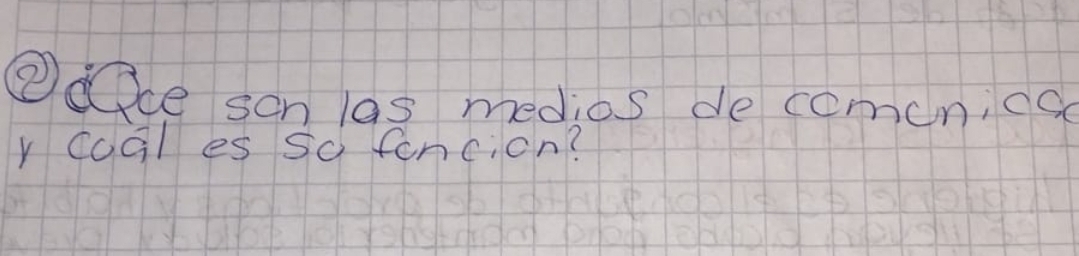 ② ¿Que son los medios de comunica
y cuál es su funcion?